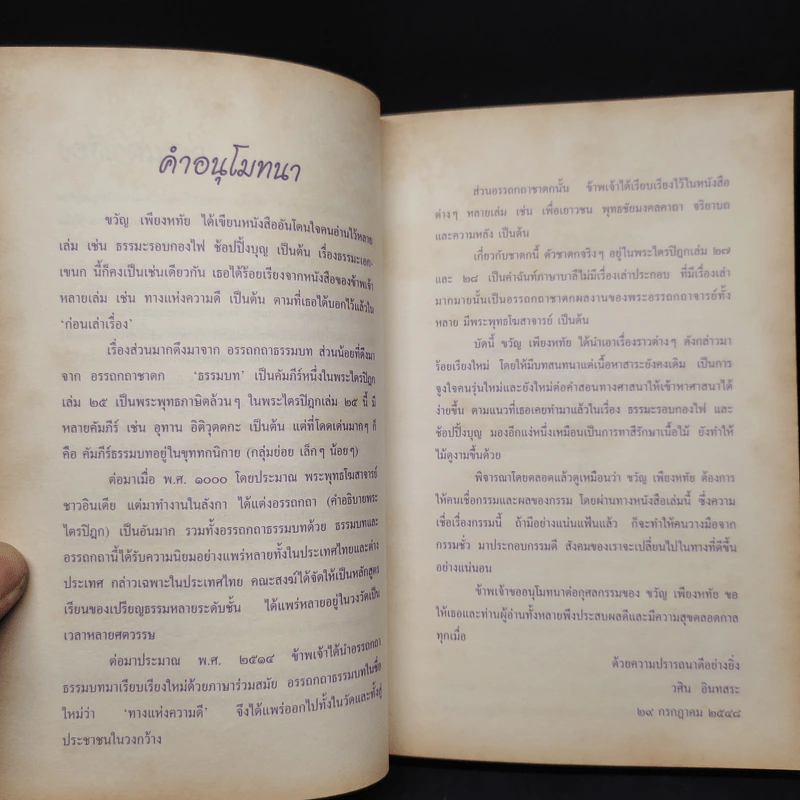 คำอนุโมทนา
ขวัญ เพียงหทัย ได้เขียนหนังสืออันโดนใจคนอ่านไว้หลาย
เล่ม เช่น ธรรมะรอบกองไฟ ช้อปปิ้งบุญ เป็นต้น เรื่องธรรมะเอก-
เขนก นี้ก็คงเป็นเช่นเดียวกัน เธอได้ร้อยเรียงจากหนังสือของข้าพเจ้า
หลายเล่ม เช่น ทางแห่งความดี เป็นต้น ตามที่เธอได้บอกไว้แล้วใน
‘ก่อนเล่าเรื่อง’
เรื่องส่วนมากดึงมาจาก อรรถกถาธรรมบท ส่วนน้อยที่ดึงมา
จาก อรรถกถาชาดก ‘ธรรมบท’ เป็นคัมภีร์หนึ่งในพระไตรปิฎก
เล่ม ๒๕ เป็นพระพุทธภาษิตล้วนๆ ในพระไตรปิฎกเล่ม ๒๕ นี้ มี
หลายคัมภีร์ เช่น อุทาน อิติวุตตกะ เป็นต้น แต่ที่โดดเด่นมากๆ ก็
คือ คัมภีร์ธรรมบทอยู่ในขุททกนิกาย (กลุ่มย่อย เล็กๆ น้อยๆ)
ต่อมาเมื่อ พ.ศ. ๑๐๐๐ โดยประมาณ พระพุทธโฆสาจารย์
ชาวอินเดีย แต่มาทำงานในลังกา ได้แต่งอรรถกถา (คำอธิบายพระ
ไตรปิฎก) เป็นอันมาก รวมทั้งอรรถกถาธรรมบทด้วย ธรรมบทและ
อรรถกถานี้ได้รับความนิยมอย่างแพร่หลายทั้งในประเทศไทยและต่าง
ประเทศ กล่าวเฉพาะในประเทศไทย คณะสงฆ์ได้จัดให้เป็นหลักสูตร
เรียนของเปรียญธรรมหลายระดับชั้น ได้แพร่หลายอยู่ในวงวัดเป็น
เวลาหลายศตวรรษ
ต่อมาประมาณ พ.ศ. ๒๕๑๔ ข้าพเจ้าได้นำอรรถกถา
ธรรมบทมาเรียบเรียงใหม่ด้วยภาษาร่วมสมัย อรรถกถาธรรมบทในชื่อ
ใหม่ว่า ‘ทางแห่งความดี’ จึงได้แพร่ออกไปทั้งในวัดและทั้งอยู่
ประชาชนในวงกว้าง
ส่วนอรรถกถาชาดกนั้น ข้าพเจ้าได้เรียบเรียงไว้ในหนังสือ
ต่างๆ หลายเล่ม เช่น เพื่อเยาวชน พุทธชัยมงคลคาถา จริยาบถ
และความหลัง เป็นต้น
เกี่ยวกับชาดกนี้ ตัวชาดกจริงๆ อยู่ในพระไตรปิฎกเล่ม ๒๗
และ ๒๘ เป็นคำฉันท์ภาษาบาลีไม่มีเรื่องเล่าประกอบ ที่มีเรื่องเล่า
มากมายนั้นเป็นอรรถกถาชาดกผลงานของพระอรรถกถาจารย์ทั้ง
หลาย มีพระพุทธโฆสาจารย์ เป็นต้น
บัดนี้ ขวัญ เพียงหทัย ได้นำเอาเรื่องราวต่างๆ ดังกล่าวมา
ร้อยเรียงใหม่ โดยให้มีบทสนทนาแต่เนื้อหาสาระยังคงเดิม เป็นการ
จูงใจคนรุ่นใหม่และยังใหม่ต่อคำสอนทางศาสนาให้เข้าหาศาสนาได้
ง่ายขึ้น ตามแนวที่เธอเคยทำมาแล้วในเรื่อง ธรรมะรอบกองไฟ และ
ช้อปปิ้งบุญ มองอีกแง่หนึ่งเหมือนเป็นการทาสีรักษาเนื้อไม้ ยังทำให้
ไม้ดูงามขึ้นด้วย
พิจารณาโดยตลอดแล้วดูเหมือนว่า ขวัญ เพียงหทัย ต้องการ
ให้คนเชื่อกรรมและผลของกรรม โดยผ่านทางหนังสือเล่มนี้ ซึ่งความ
เชื่อเรื่องกรรมนี้ ถ้ามีอย่างแน่นแฟ้นแล้ว ก็จะทำให้คนวางมือจาก
กรรมชั่ว มาประกอบกรรมดี สังคมของเราจะเปลี่ยนไปในทางที่ดีขึ้น
อย่างแน่นอน
ข้าพเจ้าขออนุโมทนาต่อกุศลกรรมของ ขวัญ เพียงหทัย ขอ
ให้เธอและท่านผู้อ่านทั้งหลายพึงประสบผลดีและมีความสุขตลอดกาล
ทุกเมื่อ
ด้วยความปรารถนาดีอย่างยิ่ง
วศิน อินทสระ
๒๙ กรกฎาคม ๒๕๔๘